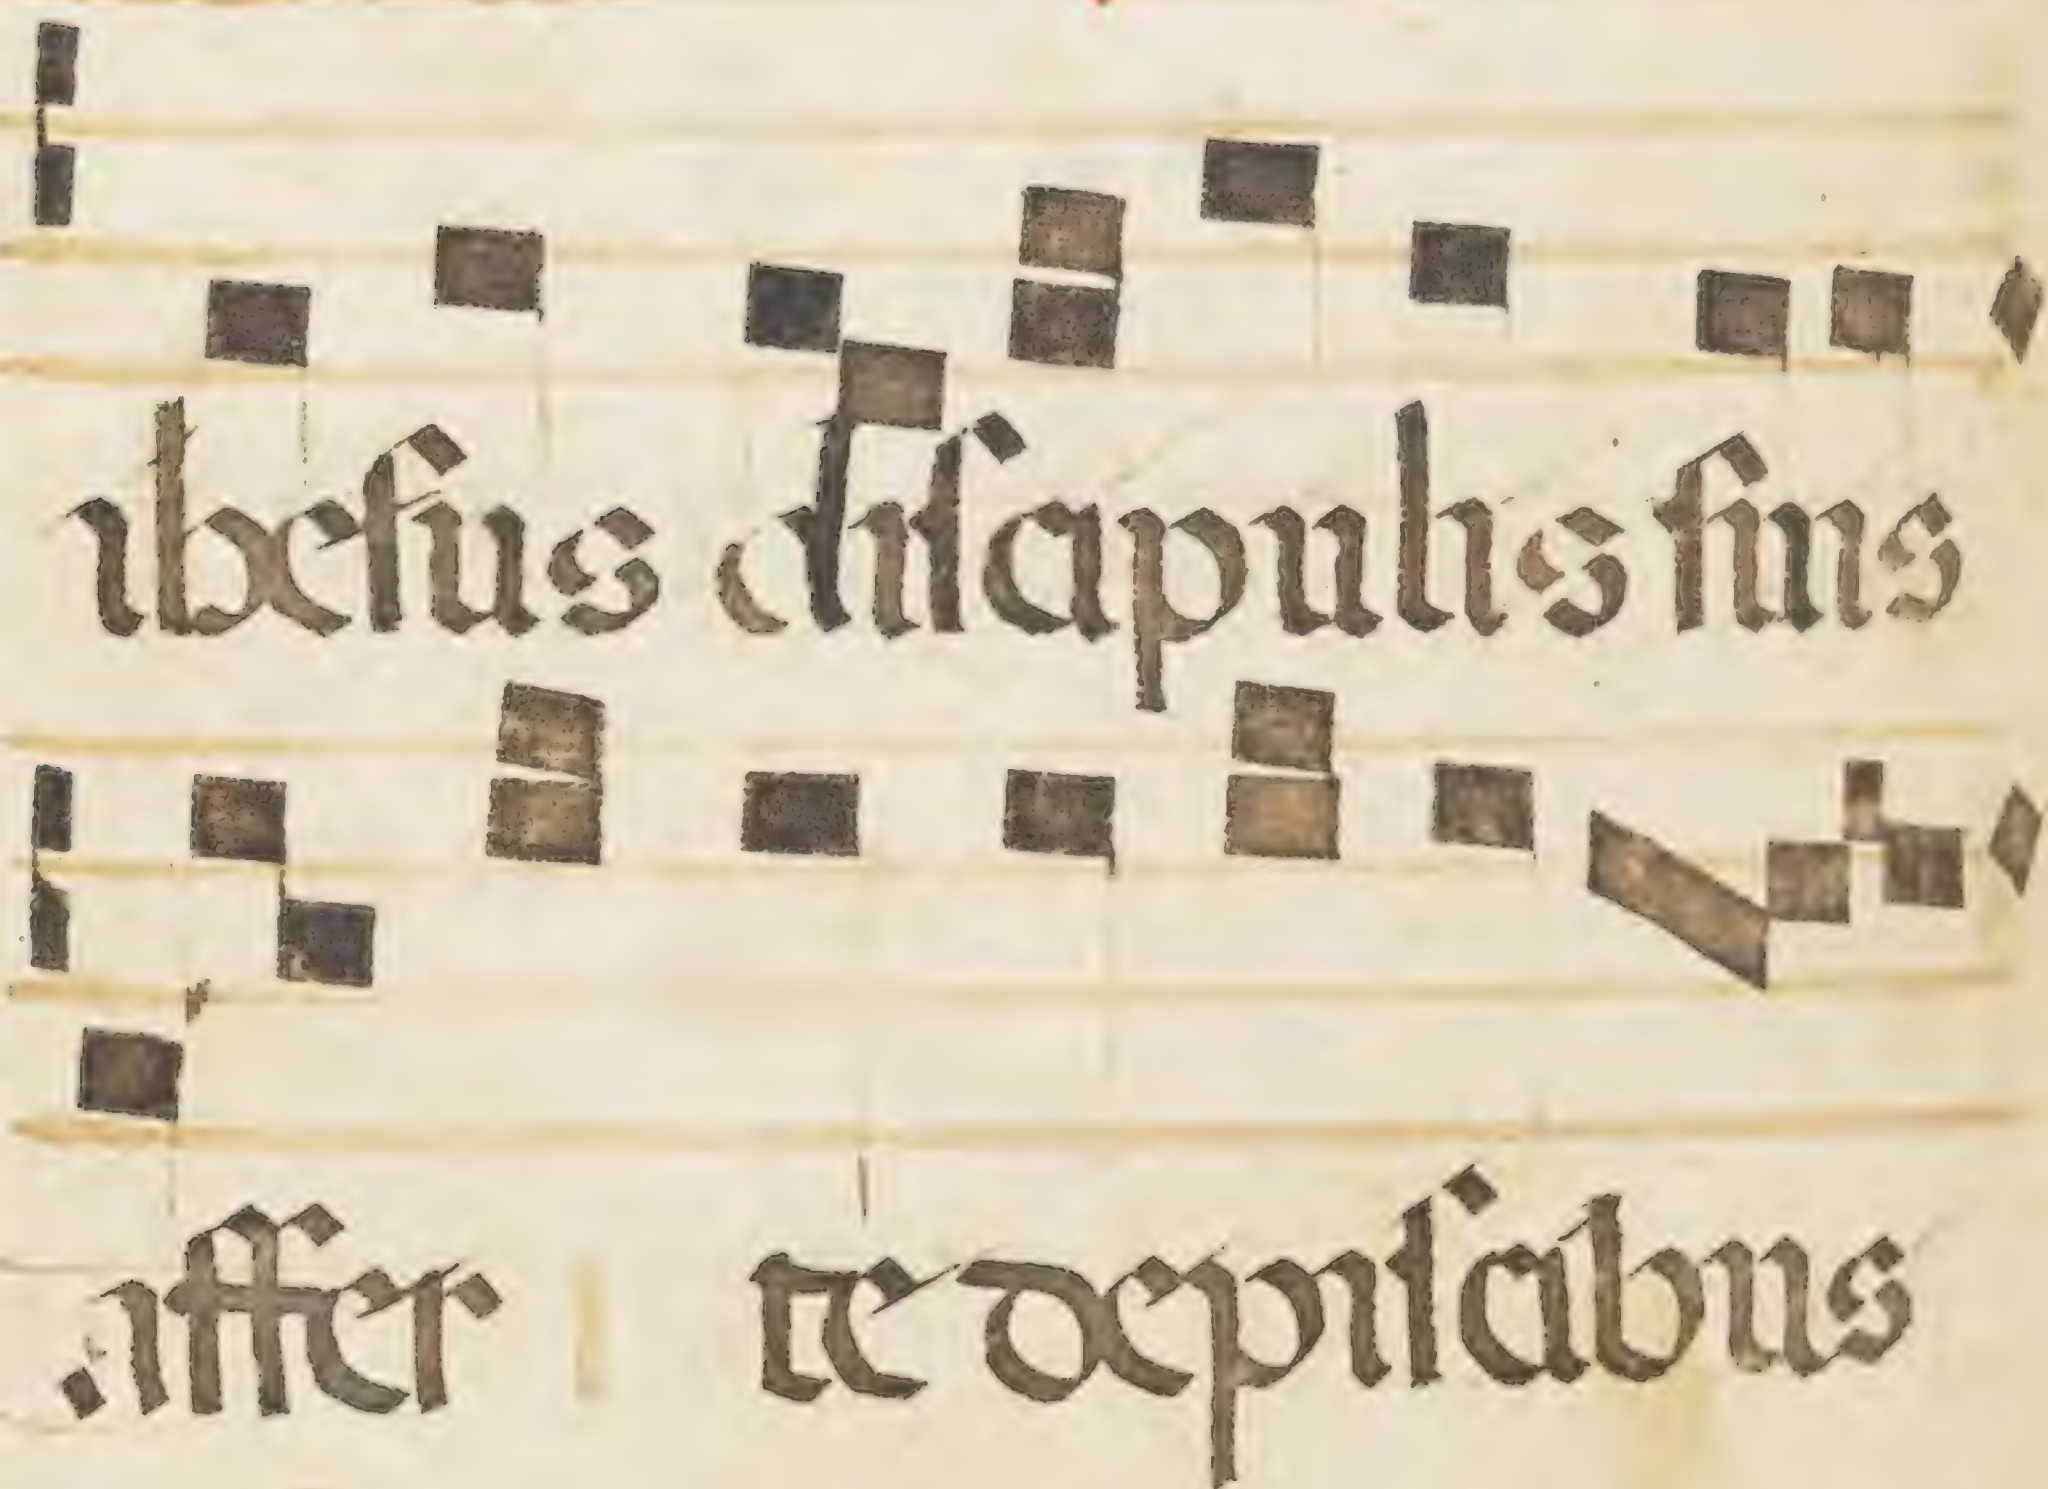 ihesus discipulis suis
affer te de piscibus